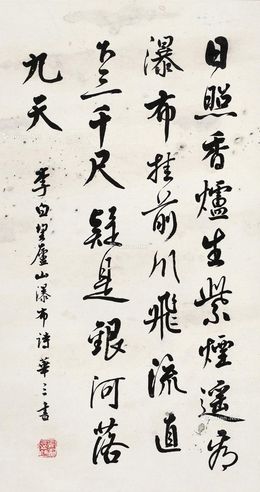 日照香爐生紫煙遙看
瀑布挂前川飛流直
下三千尺疑是銀河落
九天
李白望廬山瀑布詩 華三書